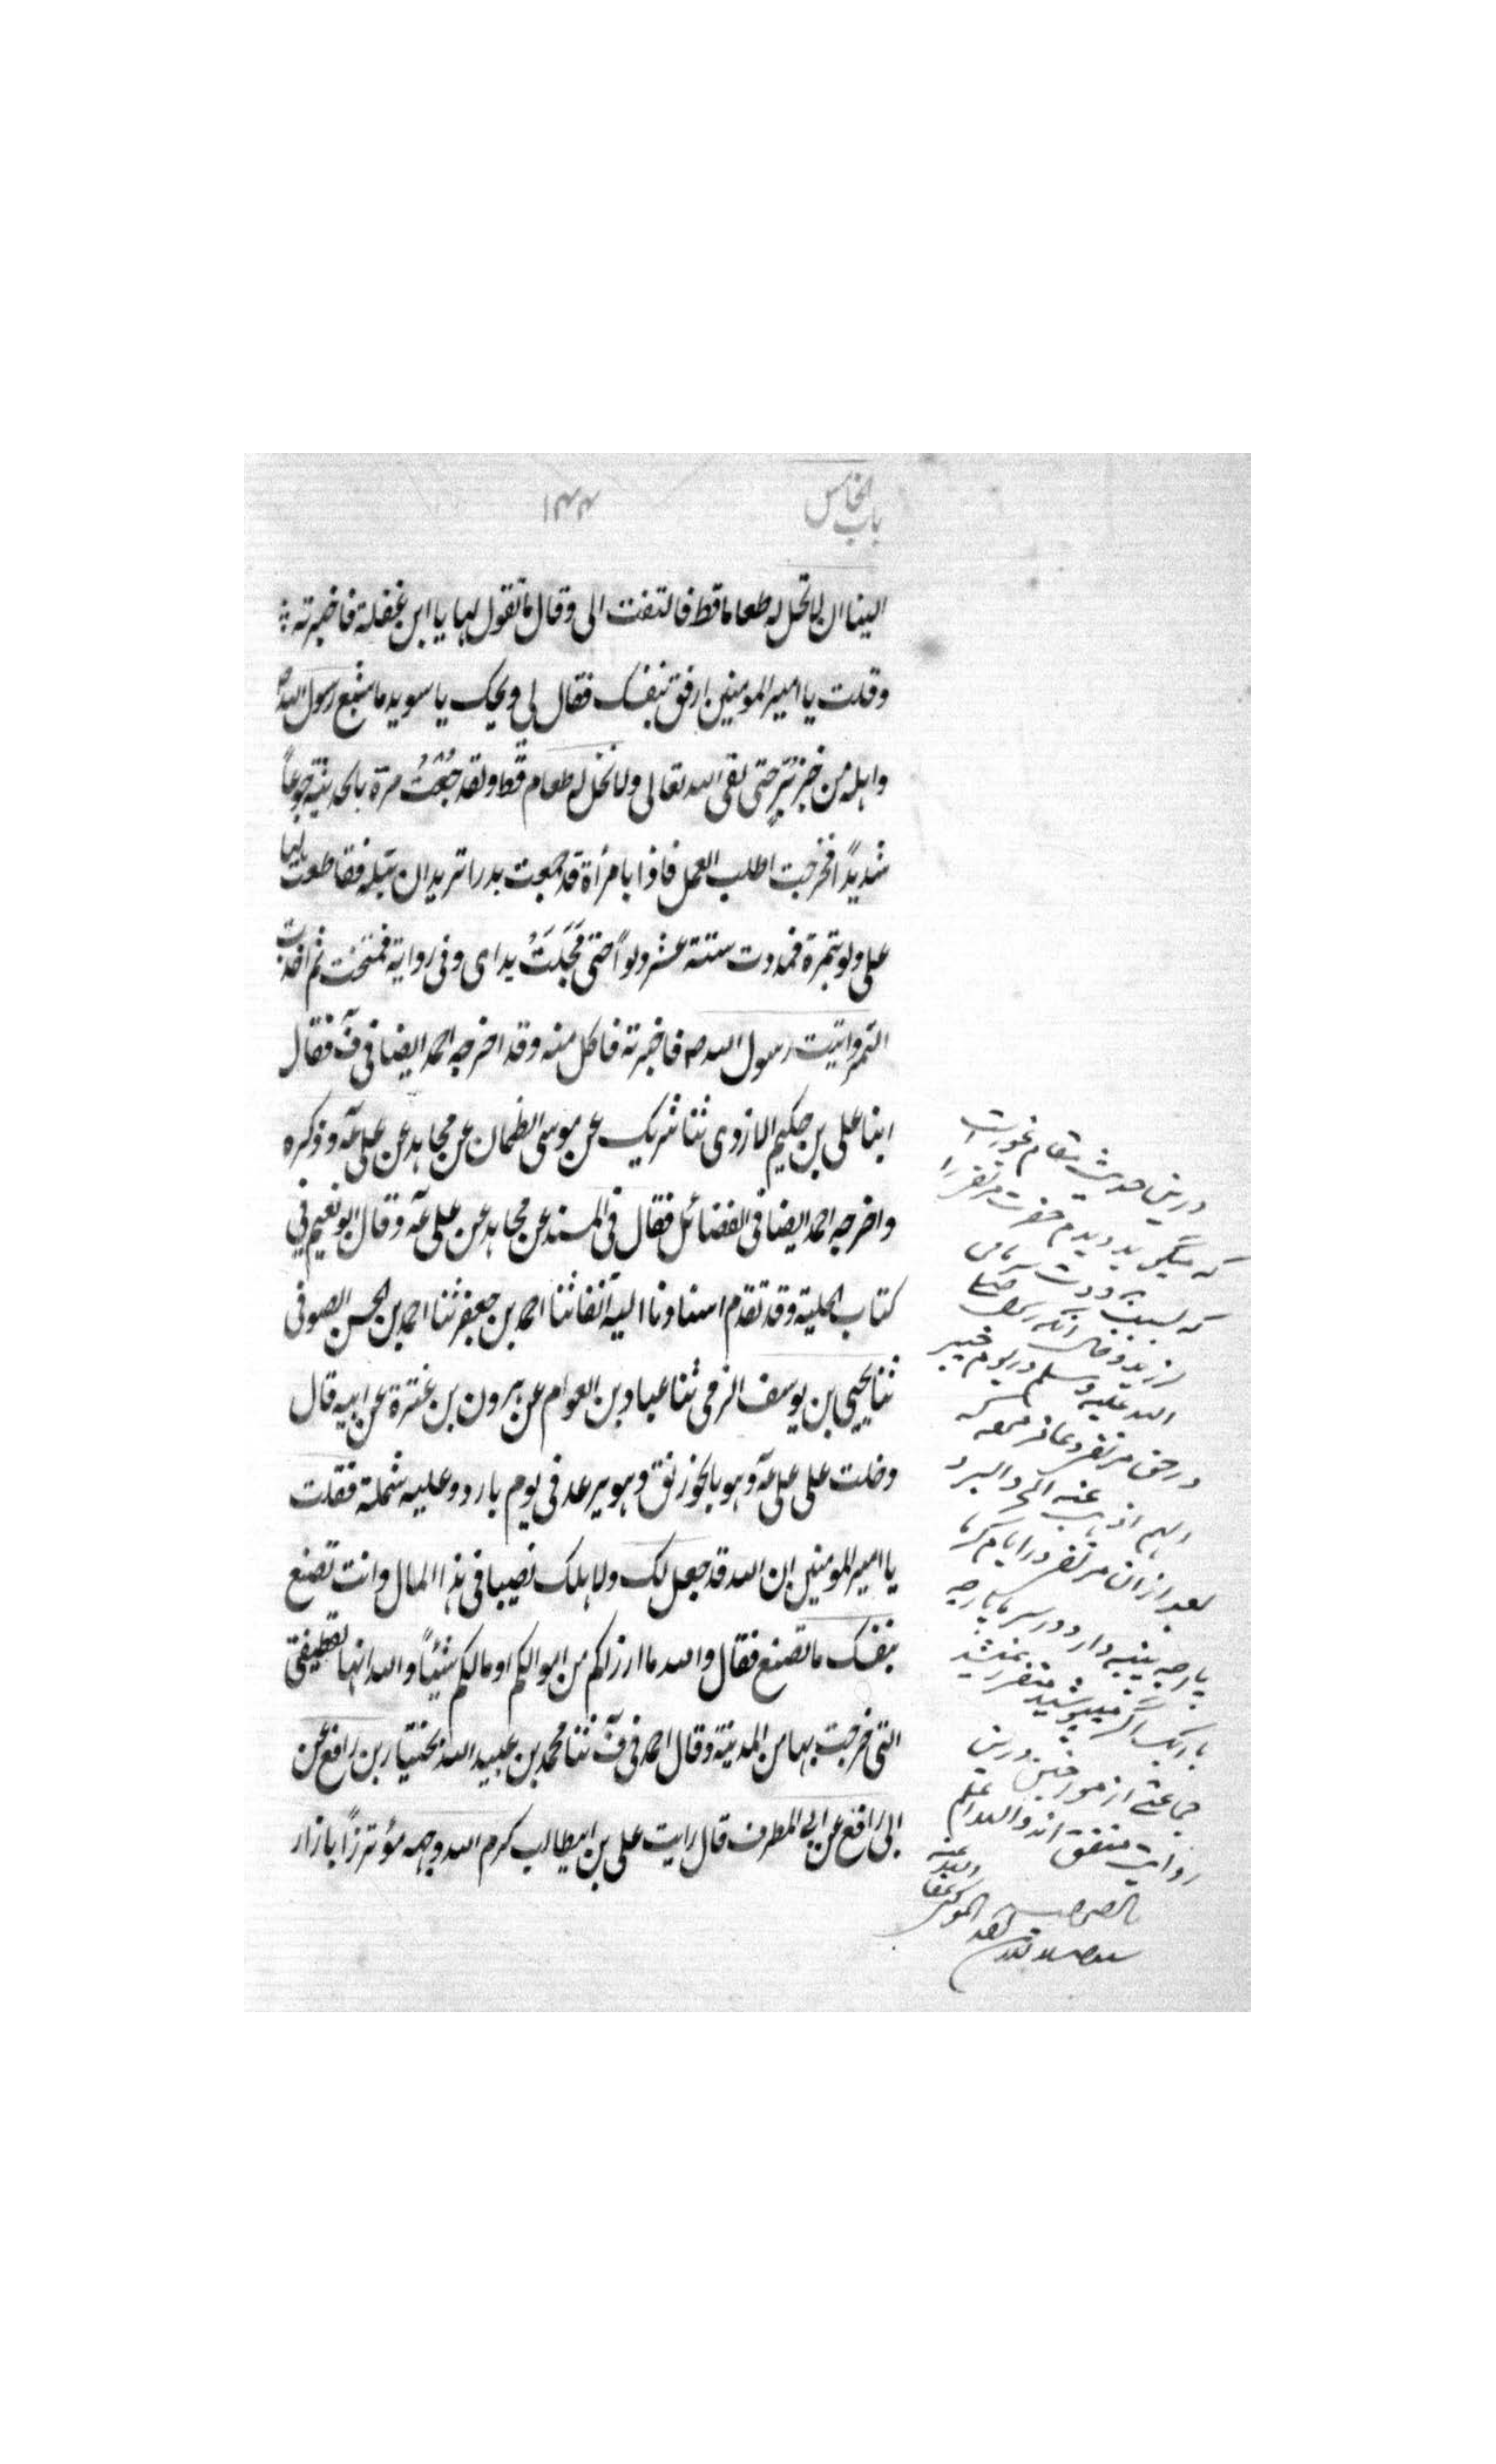 باب الخامس
۱۴۴
الینا ان لا تحل له طعاما قط فالتفت الی وقال ما تقول لها یا ابن غفلة فاخبرته
وقلت یا امیر المومنین ارفق بنفسک فقال لی ویحک یا سوید ما شبع رسول الله ص
واهله من خبز بُرٍّ حتی لقی الله تعالی ولا نخل له طعام قط ولقد جُعْتُ مرة بالمدینة جوعاً
شدیداً فخرجت اطلب العمل فاذا بامرأة قد جمعت مدرا ترید ان تبله فقاطعتها
علی دلو بتمرة فمددت ستة عشر دلواً حتی مَجَلَتْ یدای وفی روایة فمتحت ثم اخذت
التمر واتیت رسول الله ص فاخبرته فاکل منه وقد اخرجه احمد ایضا فی ف فقال
ابنا علی بن حکیم الازدی ثنا شریک عن موسی الطحان عن مجاهد عن علی عه وذکره
واخرجه احمد ایضا فی الفضائل فقال فی المسند عن مجاهد عن علی عه وقال ابو نعیم فی
کتاب الحلیة وقد تقدم اسنادنا الیه آنفا ثنا احمد بن جعفر ثنا احمد بن الحسن الصوفی
ثنا یحیی بن یوسف الزمی ثنا عباد بن العوام عن هرون بن عنترة عن ابیه قال
دخلت علی علی عه وهو بالخوزنق وهو یرعد فی یوم بارد وعلیه شملة فقلت
یا امیر المومنین ان الله قد جعل لک ولاهلک نصیبا فی هذا المال وانت تصنع
بنفسک ما تصنع فقال والله ما ارزاکم من اموالکم او مالکم شیئاً والله انها لقطیفتی
التی خرجت بها من المدینة وقال احمد فی ف ثنا محمد بن عبید الله ثنا مختیار بن رافع عن
ابی رافع عن ابی المطرف قال رایت علی بن ابیطالب کرم الله وجهه مؤتزرًا بازار
درین حدیث مقام غورست
که میگوید دیدم حضرت مرتضی را
که بسبب برودت سرما می
لرزیدند وحال آنکه رسول صلی
الله علیه وسلم در یوم خیبر
در حق مرتضی دعا فرموده که
اللهم اذهب عنه الحر والبرد
بعد ازان مرتضی در ایام گرما
پارچه پنبه دار و در سرما پارچه
باریک اگر میپوشید متضرر نمیشد
جماعتی از مورخین درین
روایت متفق اند والله اعلم